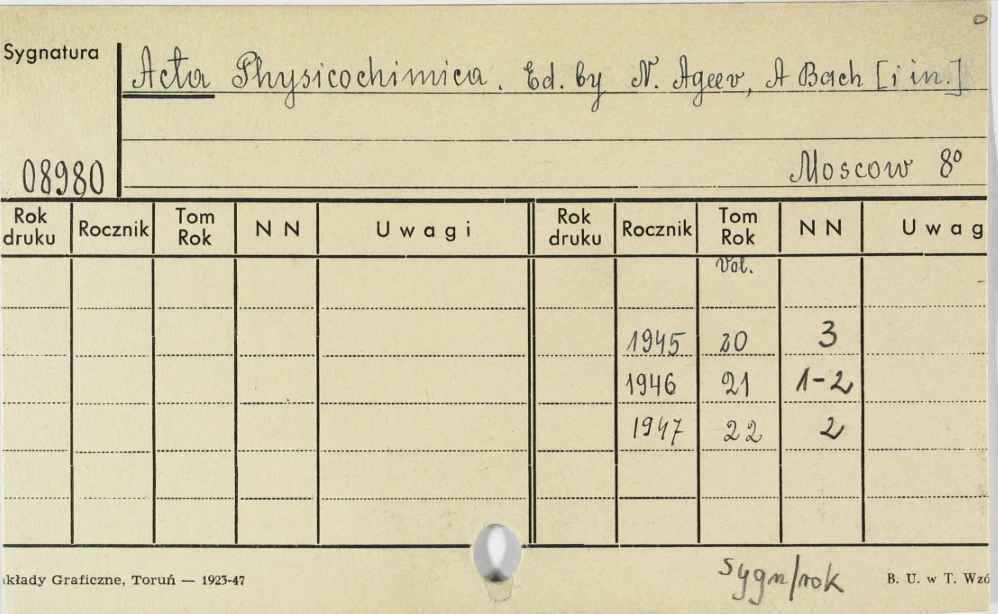 Sygnatura
Acta Physicochimica. Ed. by N. Ageev, A Bach [i in.]
08980
Moscow 8°
Rok druku Rocznik Tom Rok NN Uwagi Rok druku Rocznik Tom Rok NN Uwag
Vol.
1945 20 3
1946 21 1-2
1947 22 2
sygn/rok
kłady Graficzne, Toruń — 1923-47 B. U. w T. Wzó